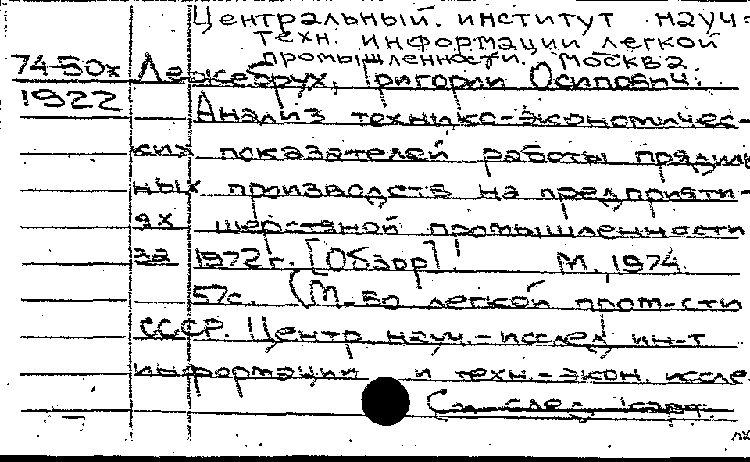 Центральный институт науч=
техн. информации легкой
промышленности. Москва.
74-50х Григорий Осипович.
1922 Анализ технико-экономичес-
ких показателей работы прядиль
ных производств на предприяти-
ях шерстяной промышленности
за 1972г. [Обзор]. М. 1974.
57с. (М-во легкой пром-сти
СССР. Центр. науч.-исслед ин-т
информации и техн.-экон. иссле
См. след. карт.